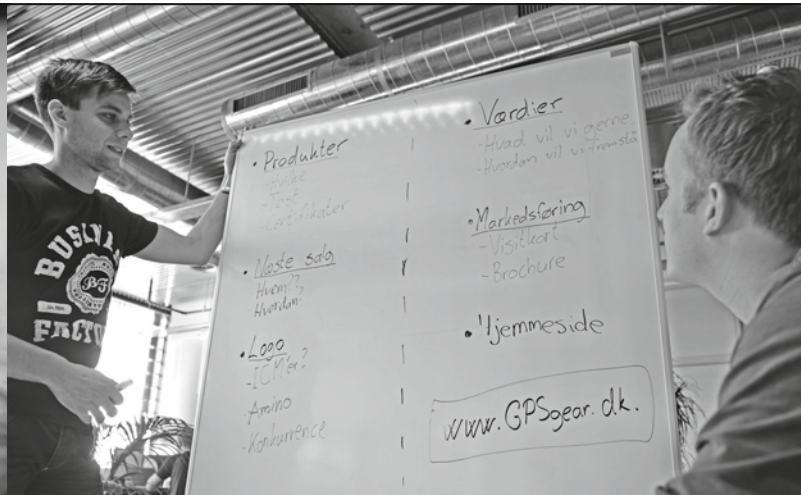 BUSINESS
BF
FACTO
• Produkter
-Hvilke
-Test
-Certifikater
• Næste salg
Hvem??
Hvordan?
• Logo
-ICM'er?
-Amino
-Konkurrence
• Værdier
-Hvad vil vi gerne
-Hvordan vil vi fremstå
• Markedsføring
-Visitkort
-Brochure
• Hjemmeside
www.GPSgear.dk.